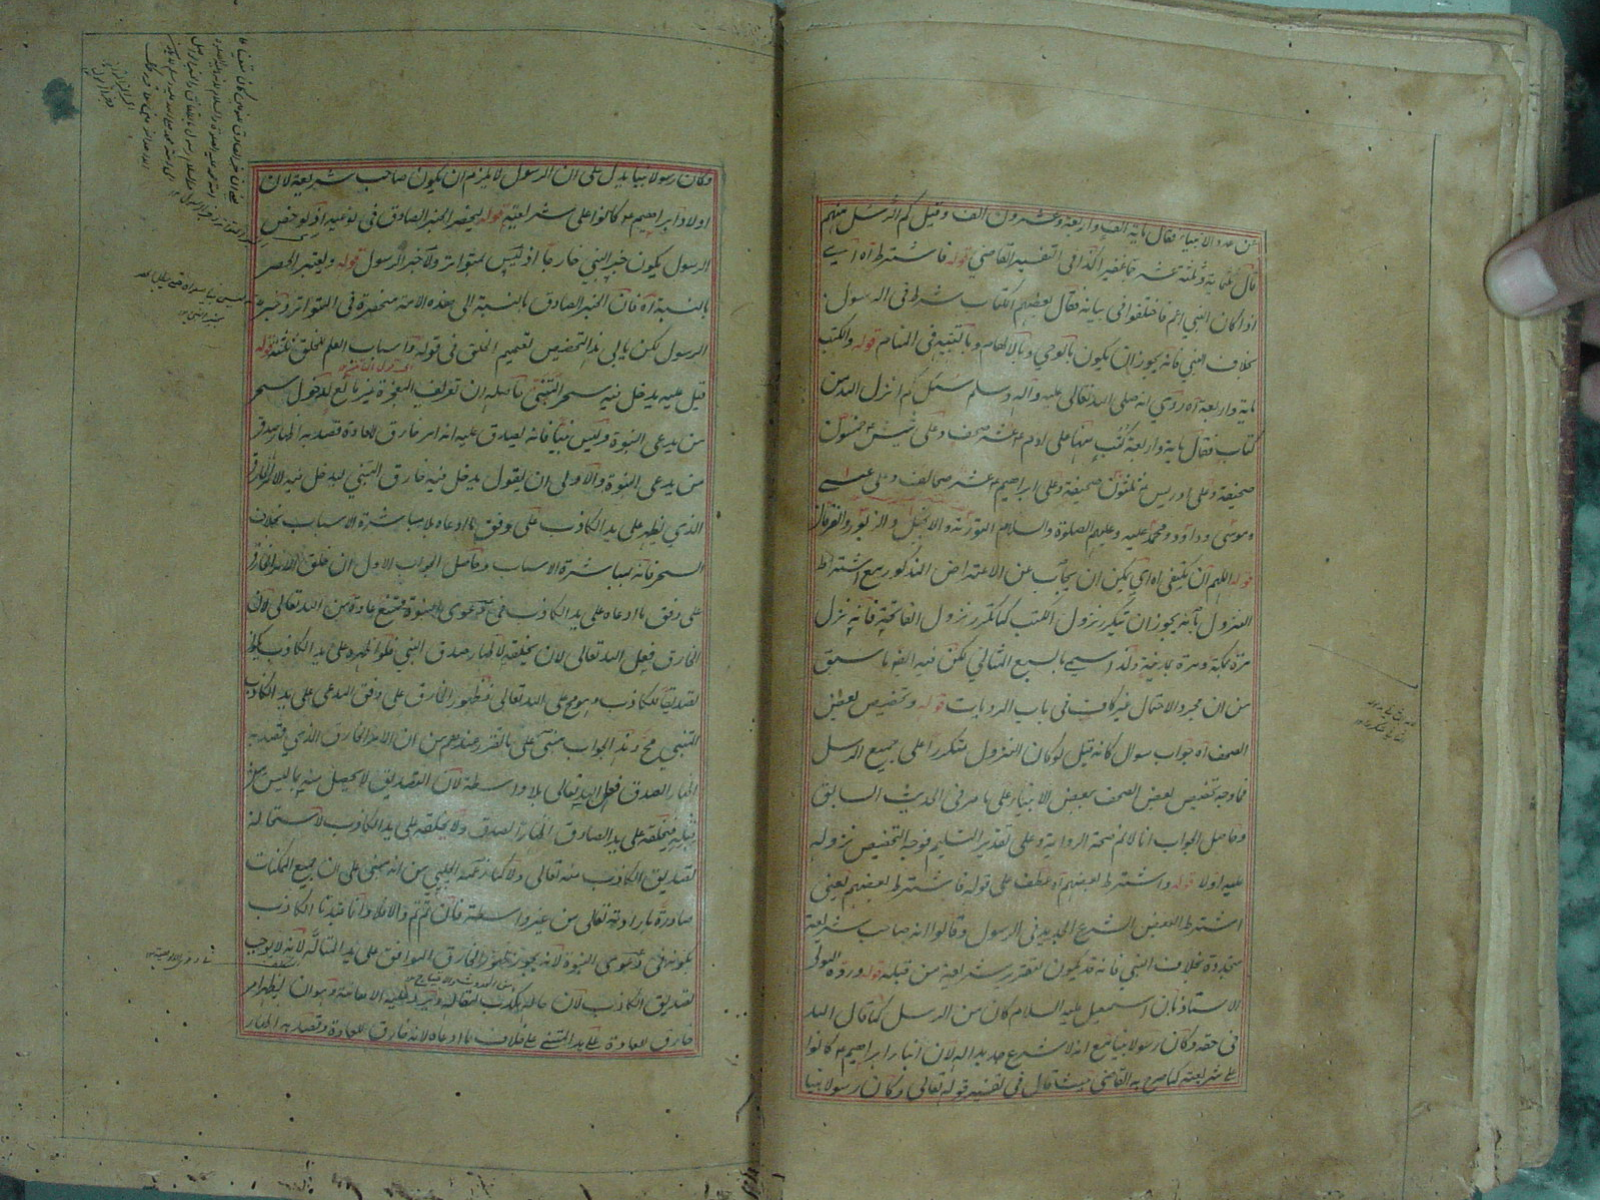 عن عدد الانبياء فقال ماية الف واربعة وعشرون الف وقيل كم الرسل منهم
قال ثلثماية وثلثة عشر جما غفيرا كذا فى التفسير القاضى قوله فاشترط اه اى
اذا كان النبى اعم فاختلفوا فى بيانه فقال بعضهم الكتاب شرط فى الرسول
بخلاف النبى فانه يجوز ان يكون بالوحى وبالالهام وبالتنبيه فى المنام قوله والكتب
ماية واربعة اه روى انه صلى الله تعالى عليه وآله وسلم سئل كم انزل الله من
كتاب فقال ماية واربعة كتب منها على ادم عشر صحف وعلى شيث خمسون
صحيفة وعلى ادريس ثلثون صحيفة وعلى ابراهيم عشر صحائف وعلى عيسى
وموسى وداؤد ومحمد عليه وعليهم الصلوة والسلام التورية والانجيل والزبور والفرقان
قوله اللهم ان يكتفى اه اى يمكن ان يجاب عن الاعتراض المذكور بمنع اشتراط
النزول بانه يجوز ان يتكرر نزول الكتب كما تكرر نزول الفاتحة فانه نزل
مرة بمكة ومرة بمدينة ولذا سمى بالسبع المثانى لكن فيه ايضا ما سبق
من ان مجرد الاحتمال غير كاف فى باب الروايات قوله وتخصيص بعض
الصحف اه جواب سوال كانه قيل لو كان النزول متكررا على جميع الرسل
فما وجه تخصيص بعض الصحف ببعض الانبياء على ما مر فى الحديث السابق
وحاصل الجواب انا لا نم صحة الرواية وعلى تقدير التسليم فوجه التخصيص نزوله
عليه اولا قوله واشترط بعضهم اه عطف على قوله فاشترط بعضهم يعنى
اشترط البعض الشرع الجديد فى الرسول وقالوا انه صاحب شريعة
متجددة بخلاف النبى فانه قد يكون لتقرر شريعة من قبله قوله ورده المولى
الاستاذ بان اسمعيل عليه السلام كان من الرسل كما قال الله
فى حقه وكان رسولا نبيا مع انه لا شرع جديد له لان ابناء ابراهيم كانوا
على شريعته كما صرح به القاضى حيث قال فى تفسير قوله تعالى وكان رسولا نبيا
وكان رسولا نبيا يدل على ان الرسول لا يلزم ان يكون صاحب شريعة لان
اولاد ابراهيم كانوا على شريعته قوله ليحصر الخبر الصادق فى نوعيه اذ لو خص
الرسول يكون خبر النبى خارجا اذ ليس بمتواتر ولا خبر الرسول قوله ويعتبر الحصر
بالنسبة اه فان الخبر الصادق بالنسبة الى هذه الامة منحصرة فى التواتر وخبر
الرسول لكن يابى هذا التخصيص تعميم الخلق فى قوله واسباب العلم للخلق ثلثة قوله
قيل عليه يدخل فيه سحر المتنبى حاصله ان تعريف المعجزة غير مانع لدخول سحر
من يدعى النبوة وليس نبيا فانه يصدق عليه انه امر خارق للعادة قصد به اظهار صدق
من يدعى النبوة والاولى ان يقول يدخل فيه خارق المتنبى ليدخل فيه الامر الخارق
الذى يظهر على يد الكاذب على وفق ما ادعاه بلا مباشرة الاسباب بخلاف
السحر فانه بمباشرة الاسباب وحاصل الجواب الاول ان خلق الامر الخارق
على وفق ما ادعاه على يد الكاذب فى دعوى النبوة ممتنع عادة من الله تعالى لان
الخارق فعل الله تعالى لان يخلقه لاظهار صدق النبى فلو اظهره على يد الكاذب يكون
تصديقا للكاذب وهو مح على الله تعالى فظهور الخارق على وفق المدعى على يد الكاذب
المتنبى مح وهذا الجواب مبنى على ما تقرر عندهم من ان الامر الخارق الذى قصد به
اظهار الصدق فعل الله تعالى بلا واسطة لان التصديق لا يحصل منه بما ليس من
قبله فيخلقه على يد الصادق اظهارا لصدقه ولا يخلقه على يد الكاذب لاستحالة
تصديق الكاذب منه تعالى ولا كما زعم الچلپى من انه مبنى على ان جميع الممكنات
صادرة بارادته تعالى من غير واسطة فان تم تم والا فلا وانما قيدنا الكاذب
بكونه فى دعوى النبوة لانه يجوز ظهور الخارق الموافق على يد المتاله لانه لا يوجب
تصديق الكاذب لان حاله يكذب لمقاله ويرد عليه الاهانة وهو ان يظهر امر
خارق للعادة على يد المتنبى على خلاف ما ادعاه لانه خارق للعادة وقصد به اظهار